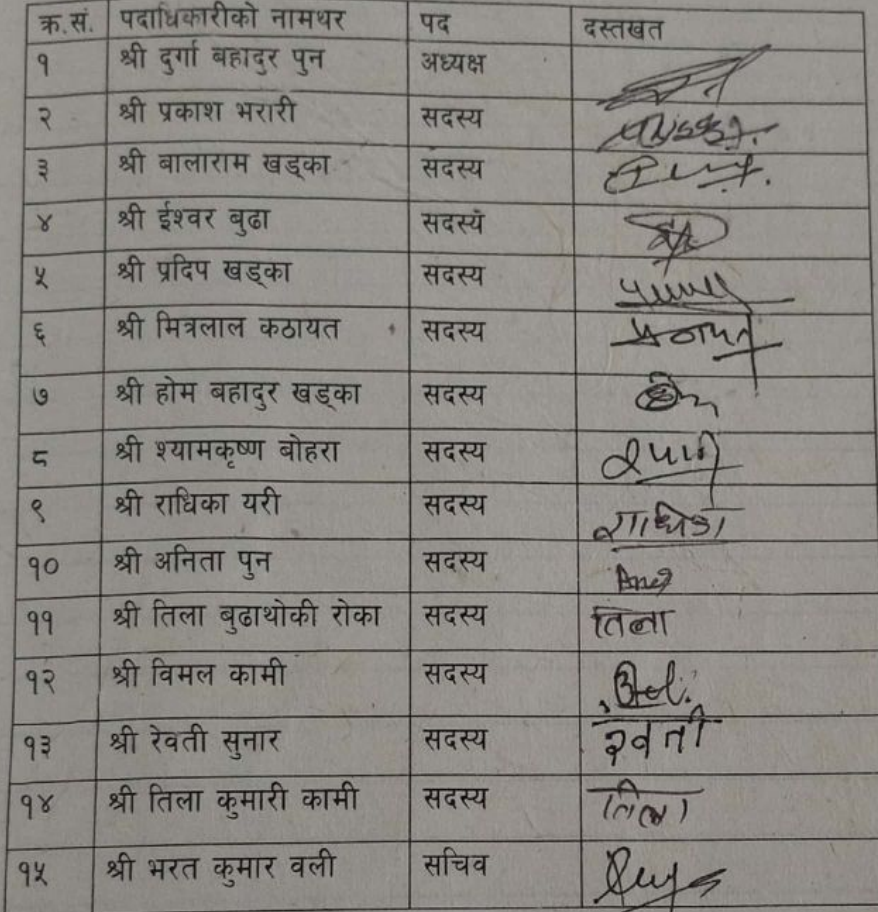 क्र.सं. पदाधिकारीको नामथर पद दस्तखत
१ श्री दुर्गा बहादुर पुन अध्यक्ष
२ श्री प्रकाश भरारी सदस्य
३ श्री बालाराम खड्का सदस्य
४ श्री ईश्वर बुढा सदस्य
५ श्री प्रदिप खड्का सदस्य
६ श्री मित्रलाल कठायत सदस्य
७ श्री होम बहादुर खड्का सदस्य
८ श्री श्यामकृष्ण बोहरा सदस्य
९ श्री राधिका यरी सदस्य राधिका
१० श्री अनिता पुन सदस्य
११ श्री तिला बुढाथोकी रोका सदस्य तिला
१२ श्री विमल कामी सदस्य
१३ श्री रेवती सुनार सदस्य रेवती
१४ श्री तिला कुमारी कामी सदस्य तिला
१५ श्री भरत कुमार वली सचिव